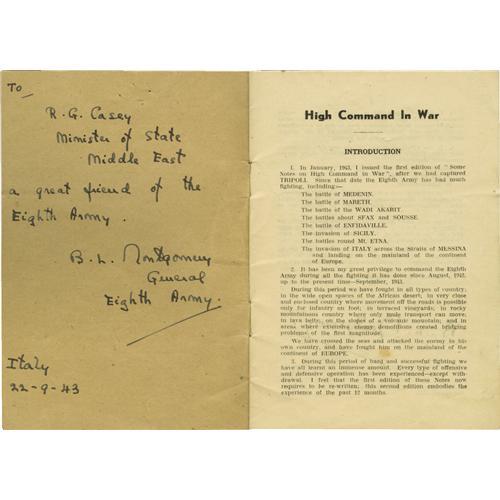 To
R. G. Casey
Minister of State
Middle East
a great friend of the
Eighth Army.
B. L. Montgomery
General
Eighth Army.
Italy
22-9-43
High Command In War
INTRODUCTION
1. In January, 1943, I issued the first edition of "Some
Notes on High Command in War", after we had captured
TRIPOLI. Since that date the Eighth Army has had much
fighting, including:—
The battle of MEDENIN.
The battle of MARETH.
The battle of the WADI AKARIT.
The battles about SFAX and SOUSSE.
The battle of ENFIDAVILLE.
The invasion of SICILY.
The battles round Mt. ETNA.
The invasion of ITALY across the Straits of MESSINA
and landing on the mainland of the continent
of Europe.
2. It has been my great privilege to command the Eighth
Army during all the fighting it has done since August, 1942,
up to the present time—September, 1943.
During this period we have fought in all types of country;
in the wide open spaces of the African desert, in very close
and enclosed country where movement off the roads is possible
only for infantry on foot; in terraced vineyards; in rocky
mountainous country where only mule transport can move,
in lava belts, on the slopes of a volcanic mountain; and in
areas where extensive enemy demolitions created bridging
problems of the first magnitude.
We have crossed the seas and attacked the enemy in his
own country, and have fought him on the mainland of the
continent of EUROPE.
3. During this period of hard and successful fighting we
have all learnt an immense amount. Every type of offensive
and defensive operation has been experienced—except with-
drawal. I feel that the first edition of these Notes now
requires to be re-written; this second edition embodies the
experience of the past 12 months.